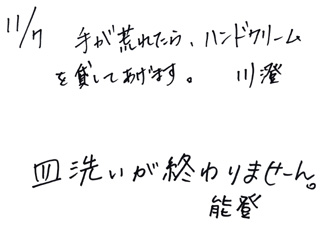 11/7 手が荒れたら、ハンドクリーム
を貸してあげます。 川澄
皿洗いが終わりませーん。
能登